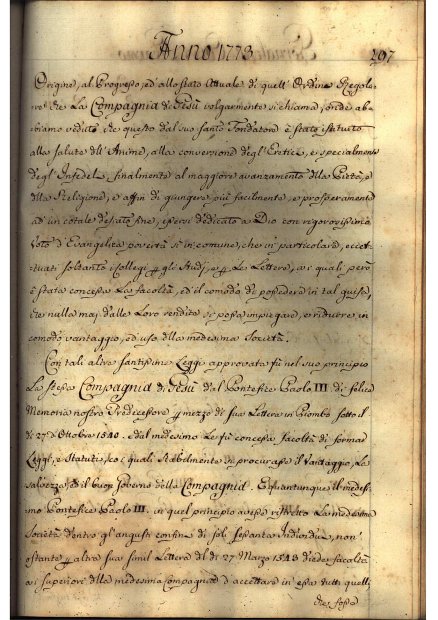 Anno 1773
197
Origine, al Progresso, ed allo stato Attuale di quell' Ordine Regola-
re, che La Compagnia di Gesù volgarmente si chiama; onde ab-
biamo veduto che questo dal suo Santo Fondatore è stato istituito
alla salute dell' Anime, alla conversione degl' Eretici, e specialmente
degl' Infedeli, finalmente al maggiore avanzamento della Pietà, e
della Religione, e affin di giungere più facilmente, e prosperamente
ad' un cotale desiato fine, essersi dedicato a Dio con rigorosissimo
Voto d' Evangelica povertà sì in comune, che in particolare, eccet-
tuati soltanto i Collegj per gli Studj, e per Le Lettere, a i quali però
è stata concessa La facoltà, ed il comodo di possedere in tal guisa,
che nulla mai dalle Loro rendite si possa impiegare, e ridurre in
comodo vantaggio, ed uso della medesima Società.
Con tali altre santissime Leggi approvata fù nel suo principio
La stessa Compagnia di Gesù dal Pontefice Paolo III di felice
Memoria nostro Predecessore per mezzo di sua Lettera in Piombo sotto il
dì 27 d' Ottobre 1540. e dal medesimo Le fù concessa facoltà di formar
Leggi, e Statuti, co i quali stabilmente si procurasse il Vantaggio, La
salvezza, ed il buon Governo della Compagnia. E quantunque il medesi-
mo Pontefice Paolo III. in quel principio avesse ristretto La medesima
Società dentro gl' angusti confini di soli sessanta Individui, non
ostante per altra sua simil Lettera del dì 27 Marzo 1543 diede facoltà
a i superiori della medesima Compagnia d' accettare in essa tutti quelli,
che fosse